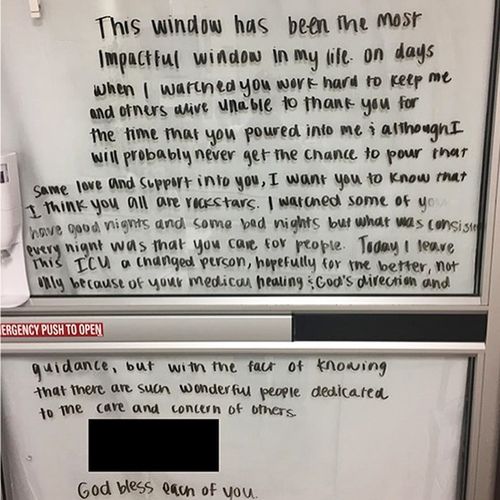 This window has been the most
Impactful window in my life. on days
when I watched you work hard to keep me
and others alive unable to thank you for
the time that you poured into me & although I
will probably never get the chance to pour that
same love and support into you, I want you to know that
I think you all are rockstars. I watched some of you
have good nights and some bad nights but what was consist
every night was that you care for people. Today I leave
This ICU a changed person, hopefully for the better, not
only because of your medical healing & God's direction and
ERGENCY PUSH TO OPEN
guidance, but with the fact of knowing
that there are such wonderful people dedicated
to the care and concern of others.
God bless each of you.